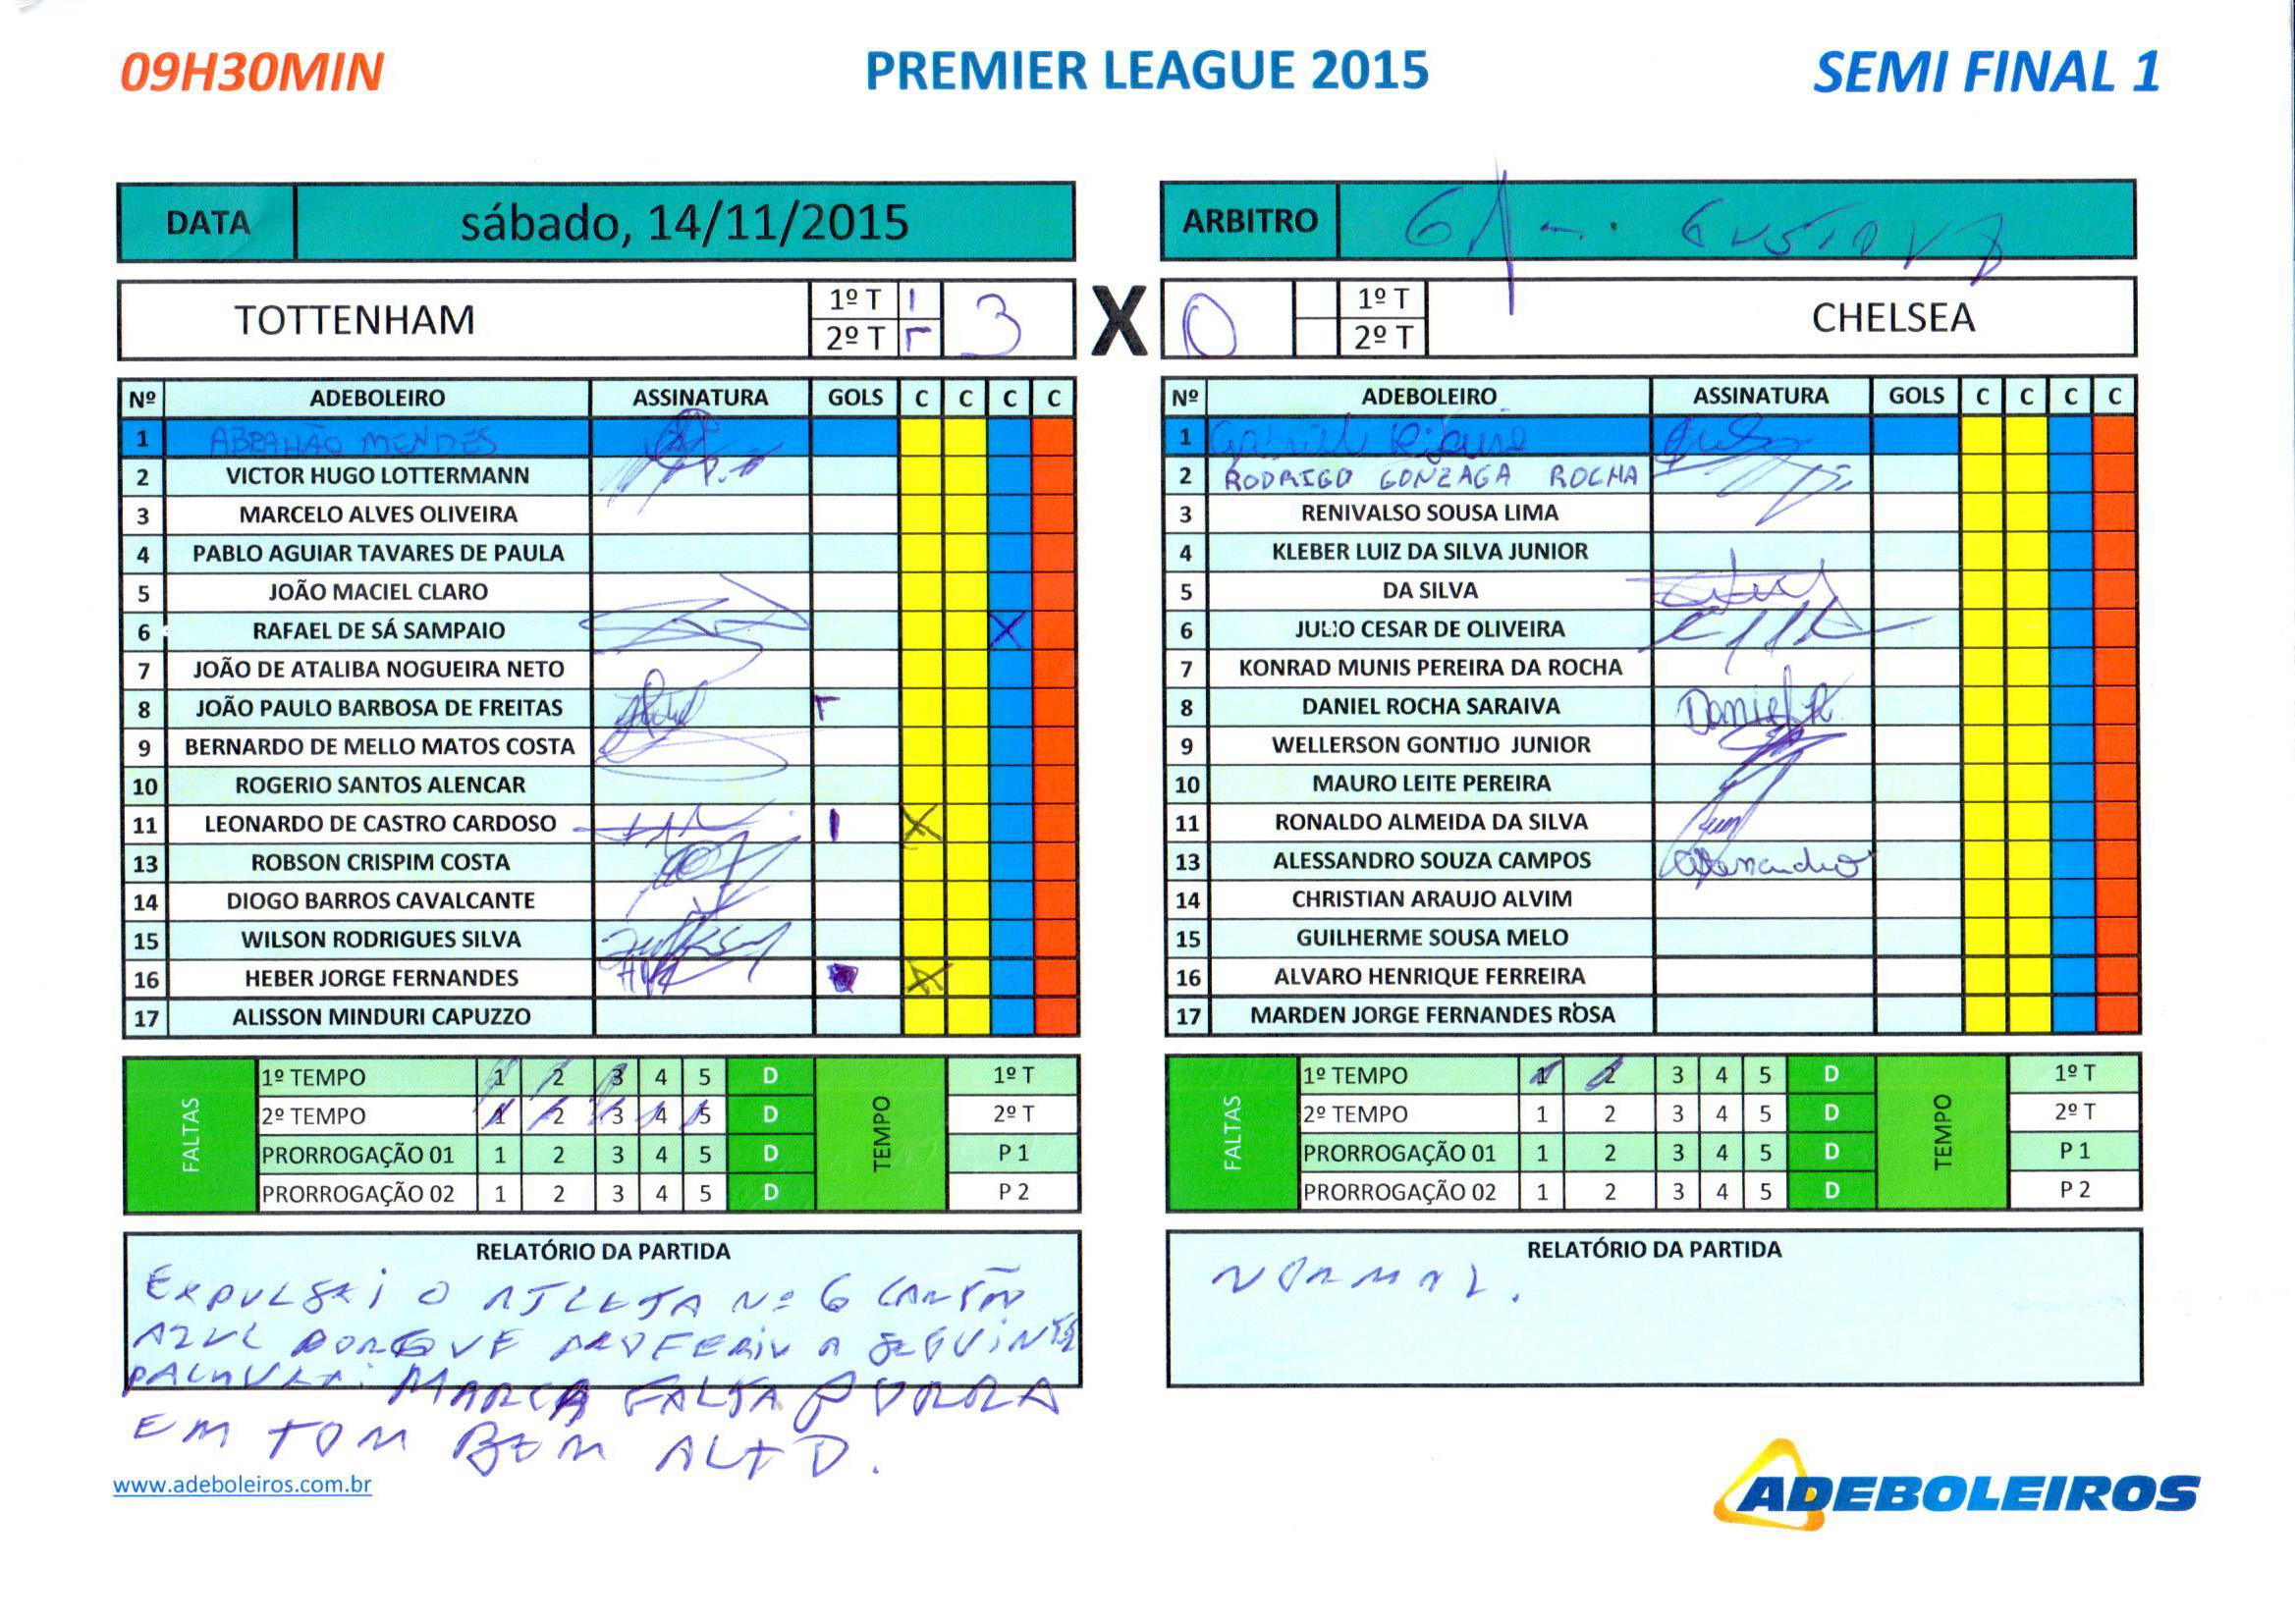 09H30MIN PREMIER LEAGUE 2015 SEMI FINAL 1
DATA sábado, 14/11/2015 ARBITRO GUSTAVO
TOTTENHAM 1º T 2º T 3 X 0 1º T 2º T CHELSEA
Nº ADEBOLEIRO ASSINATURA GOLS C C C C
1 ABRAHÃO MENDES
2 VICTOR HUGO LOTTERMANN
3 MARCELO ALVES OLIVEIRA
4 PABLO AGUIAR TAVARES DE PAULA
5 JOÃO MACIEL CLARO
6 RAFAEL DE SÁ SAMPAIO X
7 JOÃO DE ATALIBA NOGUEIRA NETO
8 JOÃO PAULO BARBOSA DE FREITAS
9 BERNARDO DE MELLO MATOS COSTA
10 ROGERIO SANTOS ALENCAR
11 LEONARDO DE CASTRO CARDOSO X
13 ROBSON CRISPIM COSTA
14 DIOGO BARROS CAVALCANTE
15 WILSON RODRIGUES SILVA
16 HEBER JORGE FERNANDES X
17 ALISSON MINDURI CAPUZZO
Nº ADEBOLEIRO ASSINATURA GOLS C C C C
1 Gabriel
2 RODRIGO GONZAGA ROCHA
3 RENIVALSO SOUSA LIMA
4 KLEBER LUIZ DA SILVA JUNIOR
5 DA SILVA
6 JULIO CESAR DE OLIVEIRA
7 KONRAD MUNIS PEREIRA DA ROCHA
8 DANIEL ROCHA SARAIVA Daniel R
9 WELLERSON GONTIJO JUNIOR
10 MAURO LEITE PEREIRA
11 RONALDO ALMEIDA DA SILVA
13 ALESSANDRO SOUZA CAMPOS Alessandro
14 CHRISTIAN ARAUJO ALVIM
15 GUILHERME SOUSA MELO
16 ALVARO HENRIQUE FERREIRA
17 MARDEN JORGE FERNANDES ROSA
FALTAS
1º TEMPO 1 2 3 4 5 D
2º TEMPO 1 2 3 4 5 D
PRORROGAÇÃO 01 1 2 3 4 5 D
PRORROGAÇÃO 02 1 2 3 4 5 D
TEMPO
1º T
2º T
P 1
P 2
FALTAS
1º TEMPO 1 2 3 4 5 D
2º TEMPO 1 2 3 4 5 D
PRORROGAÇÃO 01 1 2 3 4 5 D
PRORROGAÇÃO 02 1 2 3 4 5 D
TEMPO
1º T
2º T
P 1
P 2
RELATÓRIO DA PARTIDA
EXPULSEI O ATLETA Nº 6 CARTÃO
AZUL PORQUE PROFERIU A SEGUINTE
PALAVRA: MARCA FALTA PORRA
EM TOM BEM ALTO.
RELATÓRIO DA PARTIDA
NORMAL.
www.adeboleiros.com.br
ADEBOLEIROS